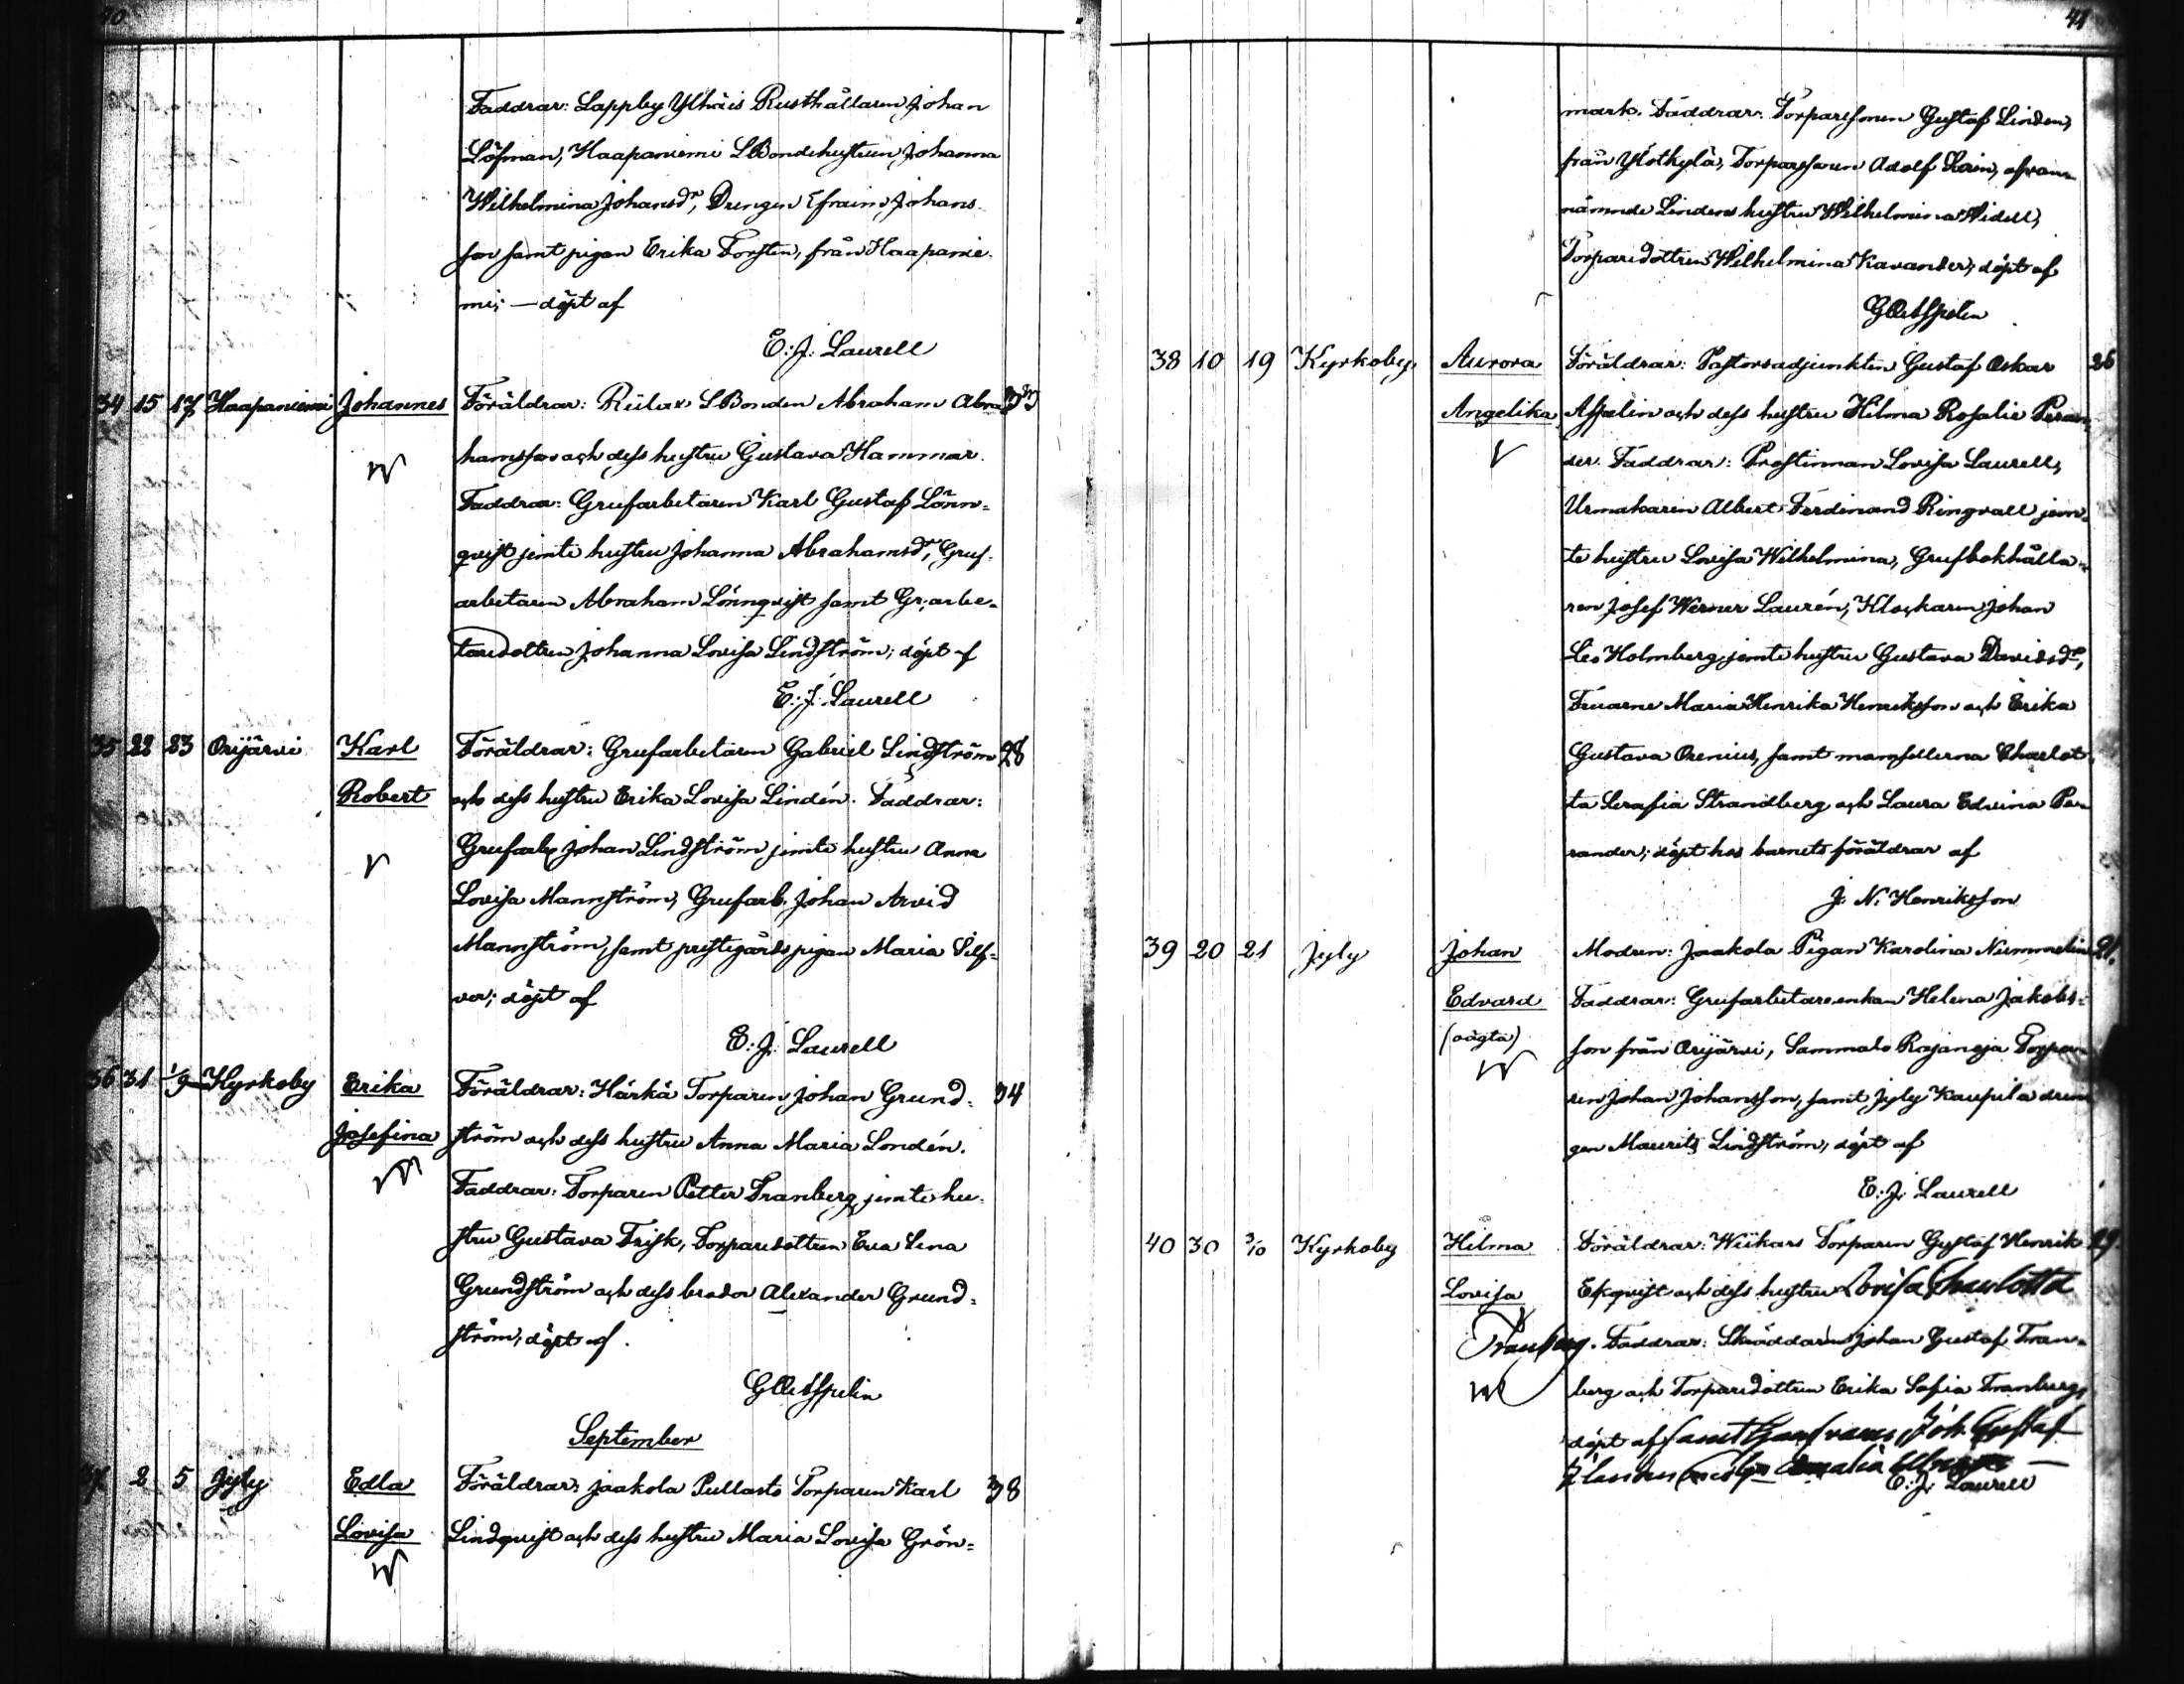 40
Faddrar: Lappby Ylhäis Rusthållaren Johan
Löfman, Haapaniemi LBondehustrun Johanna
Wilhelmina Johansdr, Drengen Efraim Johans
son samt pigan Erika Forsten, från Haapanie
mi; — döpt af
E: J: Laurell
34 15 17 Haapaniemi Johannes Föräldrar: Riilax LBonden Abraham Abra 33
hamsson och dess hustru Gustava Hammar.
Faddrar: Grufarbetaren Karl Gustaf Lönn=
qvist jemte hustru Johanna Abrahamsdr, Gruf
arbetaren Abraham Lönnqvist samt Gr:arbe=
taredottren Johanna Lovisa Lindström; döpt af
E: J: Laurell
35 22 23 Orijärvi Karl Föräldrar: Grufarbetaren Gabriel Lindström 28
Robert och dess hustru Erika Lovisa Lindén. Faddrar:
Grufarb. Johan Lindström jemte hustru Anna
Lovisa Mannström, Grufarb. Johan Arvid
Mannström, samt prestegårdspigan Maria Silf=
ver; döpt af
E: J: Laurell
36 31 1/9 Kyrkoby Erika Föräldrar: Härkä Torparen Johan Grund= 34
Josefina ström och dess hustru Anna Maria Londén.
Faddrar: Torparen Petter Tranberg jemte hu=
stru Gustava Frisk, Torparedottren Eva Lena
Grundström och dess broder Alexander Grund=
ström, döpt af.
GOAsspelin
September
37 2 5 Jyly Edla Föräldrar: Jaakola Pullasto Torparen Karl 38
Lovisa Lindqvist och dess hustru Maria Lovisa Grön=
41
mark. Faddrar: Torparesonen Gustaf Linden,
från Ylötkylä, Torparesonen Adolf Lain, ofvan
nämnde Lindens hustru Wilhelmina Widell,
Torparedottren Wilhelmina Kavander, döpt af
GOAsspelin
38 10 19 Kyrkoby Aurora Föräldrar: Pastorsadjunkten Gustaf Oskar 26
Angelika Asspelin och dess hustru Hilma Rosalie Peran
der. Faddrar: Prostinnan Lovisa Laurell,
Urmakaren Albert Ferdinand Ringvall jem=
te hustru Lovisa Wilhelmina, Grufbokhålla=
ren Josef Werner Laurén, Klockaren Johan
Leo Holmberg jemte hustru Gustava Davidsdr,
Fruarne Maria Henrika Henriksson och Erika
Gustava Orenius, samt mamsellerna Charlot
ta Serafia Strandberg och Laura Edvina Pe=
rander; döpt hos barnets föräldrar af
J: N: Henriksson
39 20 21 Jyly Johan Modren: Jaakola Pigan Karolina Nummelin 21.
Edvard Faddrar: Grufarbetareenkan Helena Jakobs=
(oägta) son från Orijärvi, Sammalo Rajaneja Torpa=
ren Johan Johansson, samt Jyly Kaupila dren
gen Maurits Lindström, döpt af
E: J: Laurell
40 30 3/10 Kyrkoby Hilma Föräldrar: Wiikars Torparen Gustaf Henrik 29.
Lovisa Ekqvist och dess hustru Lovisa Charlotta
Tranberg. Faddrar: Skräddaren Johan Gustaf Tran=
berg och Torparedottren Erika Sofia Tranberg,
döpt af samt Joh. Gustaf
Amalia
E: J: Laurell